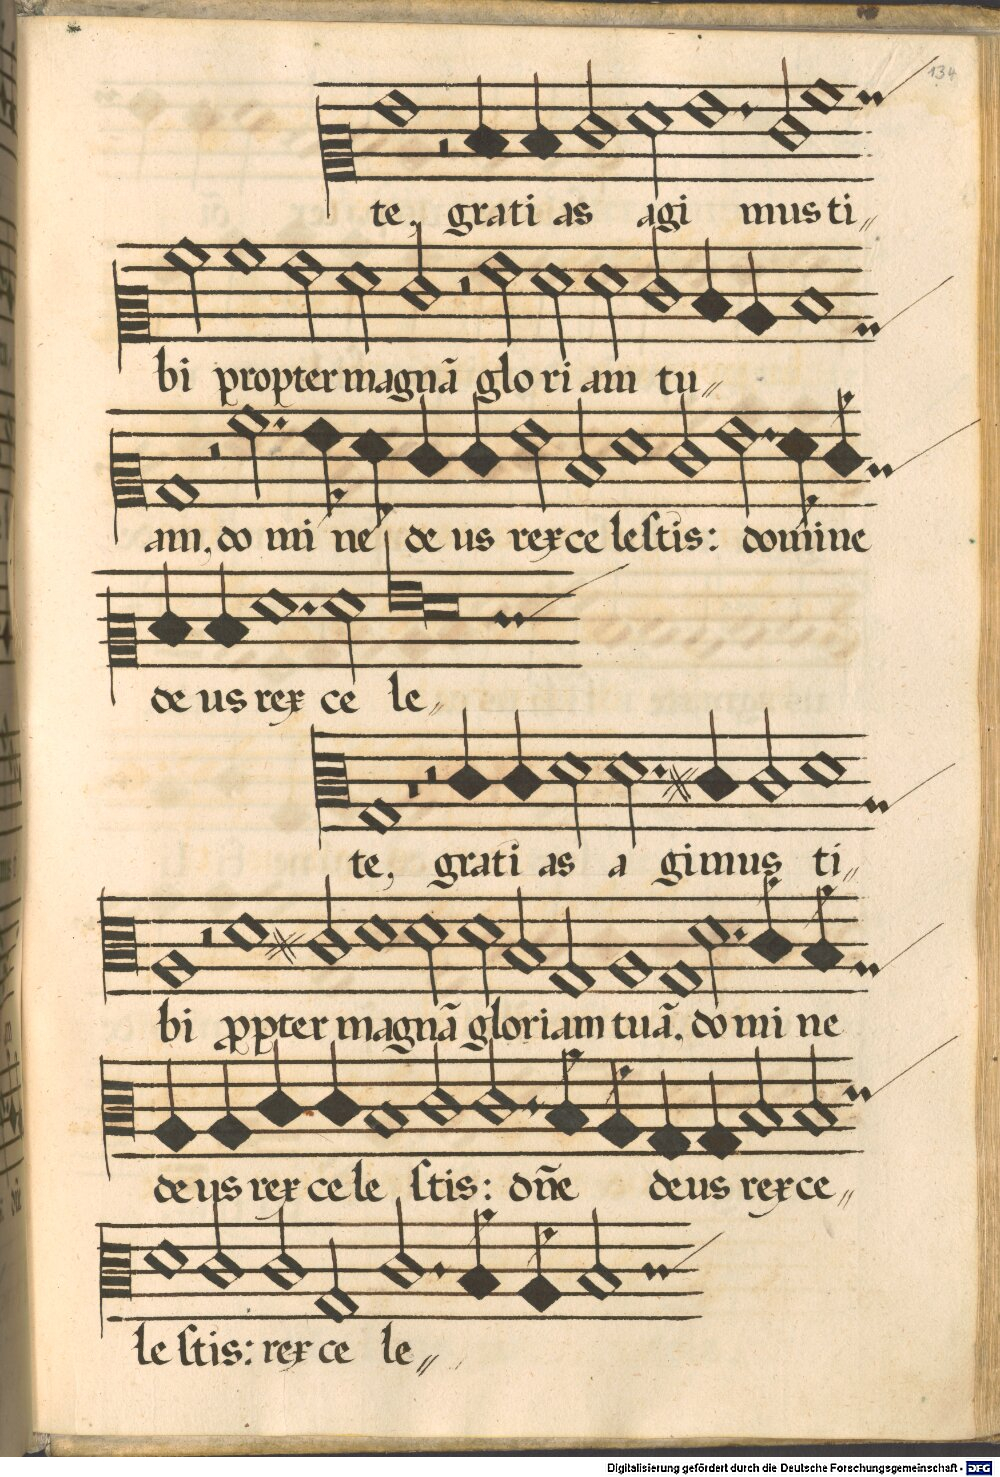 134
te, grati as agi mus ti„
bi propter magnã glo ri am tu„
am, do mi ne de us rex ce lestis: domine
de us rex ce le„
te, grati as a gimus ti„
bi ꝓpter magnã gloriam tuã, do mi ne
de us rex ce le stis: dñe deus rex ce„
le stis: rex ce le„
Digitalisierung gefördert durch die Deutsche Forschungsgemeinschaft - DFG